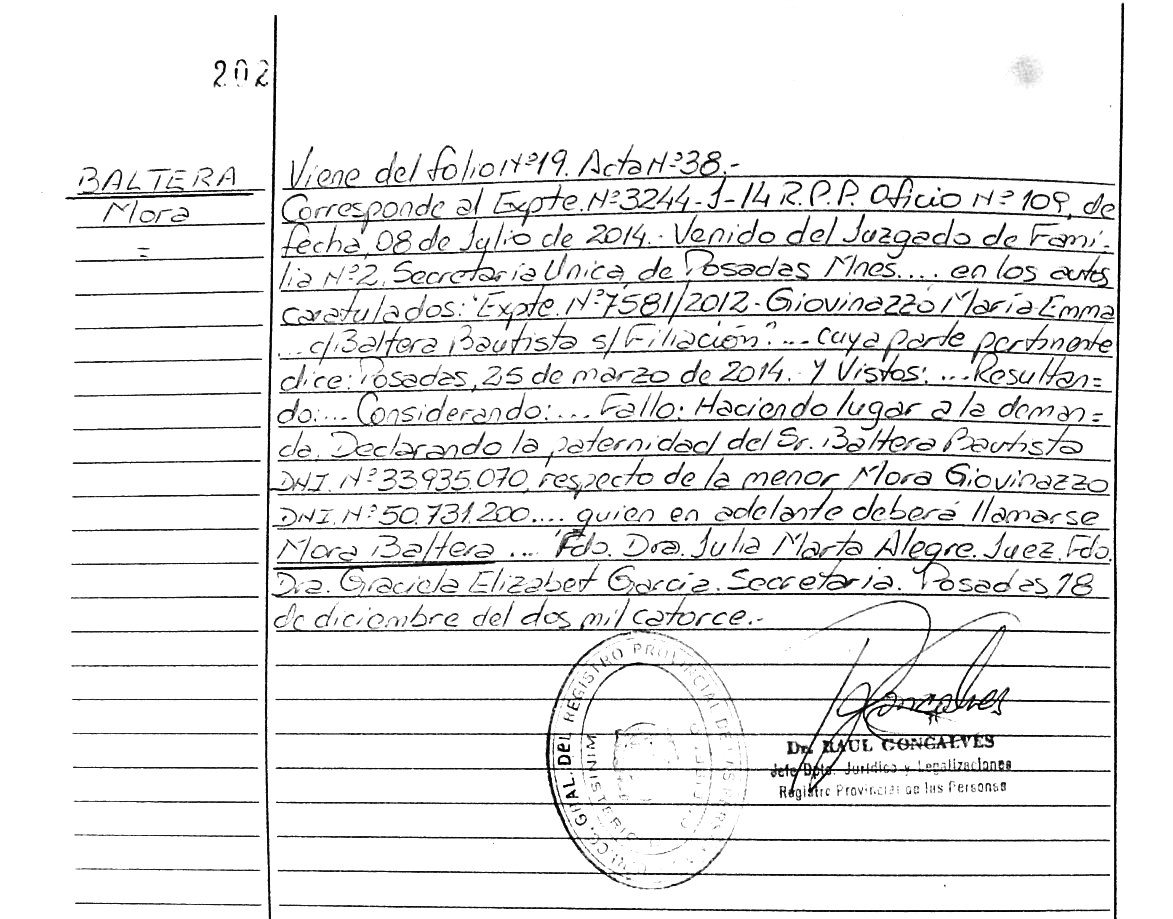 202
BALTERA
Mora
=
Viene del folio Nº19. Acta Nº38.-
Corresponde al Expte. Nº3244-J-14 R.P.P. Oficio Nº 109, de
fecha, 08 de Julio de 2014.- Venido del Juzgado de Fami-
lia Nº2, Secretaría Unica, de Posadas Mnes.... en los autos
caratulados: "Expte. Nº7581/2012- Giovinazzo María Emma
... c/ Baltera Bautista s/ Filiación"... cuya parte pertinente
dice: Posadas, 25 de marzo de 2014. Y Vistos: ... Resultan=
do:... Considerando:... Fallo: Haciendo lugar a la deman=
da. Declarando la paternidad del Sr. Baltera Bautista
DNI. Nº33.935.070, respecto de la menor Mora Giovinazzo
DNI. Nº50.731.200.... quien en adelante deberá llamarse
Mora Baltera ... Fdo. Dra. Julia Marta Alegre. Juez. Fdo.
Dra. Graciela Elizabet García. Secretaria. Posadas 18
de diciembre del dos mil catorce.-
GRAL. DEL REGISTRO PROVINCIAL DE
MINISTERIO
Goncalves
Dr. RAUL GONCALVES
Jefe Dpto. Jurídico y Legalizaciones
Registro Provincial de las Personas